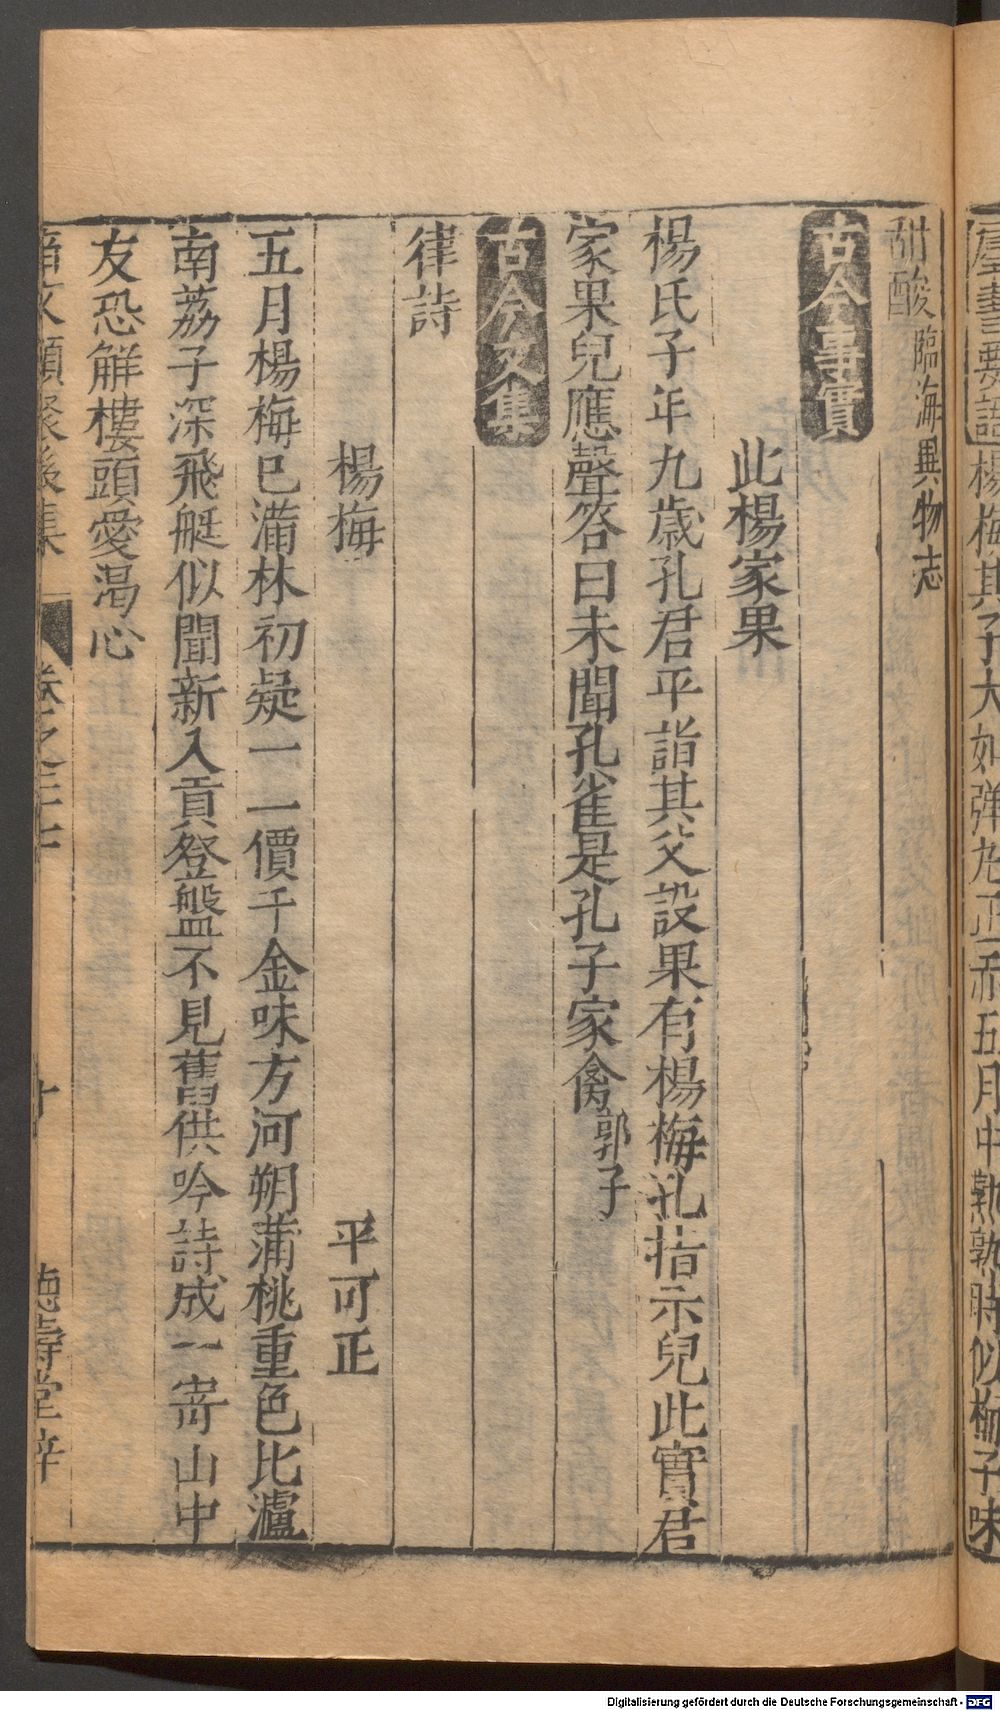 羣書要語楊梅其子大如彈丸正赤五月中熟熟時似梅子味
甜酸臨海異物志
古今事實
此楊家果
楊氏子年九歲孔君平詣其父設果有楊梅孔指示兒此實君
家果兒應聲答曰未聞孔雀是孔子家禽郭子
古今文集
律詩
楊梅 平可正
五月楊梅已滿林初疑一一價千金味方河朔蒲桃重色比瀘
南荔子深飛艇似聞新入貢登盤不見舊供吟詩成一寄山中
友恐解樓頭愛渴心
事文類聚後集 卷之二十七 十 德壽堂梓
Digitalisierung gefördert durch die Deutsche Forschungsgemeinschaft - DFG